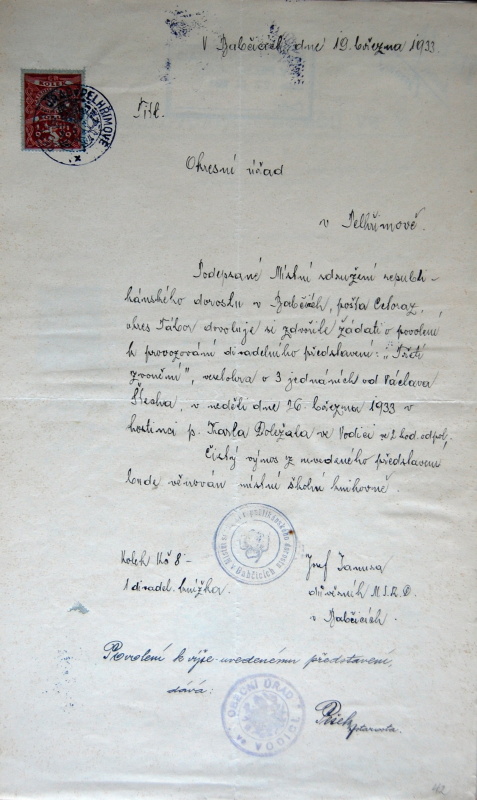 V Babčicích, dne 19. března 1933.
Titl.
Okresní úřad
v Pelhřimově.
Podepsané Místní sdružení republi-
kánského dorostu v Babčicích, pošta Celoraz,
okres Tábor dovoluje si zdvořile žádati o povolení
k provozování divadelního představení: „Třetí
zvonění", veselohra o 3 jednáních od Václava
Štecha, v neděli dne 26. března 1933 v
hostinci p. Karla Doležala ve Vodici ve 2 hod. odpol.
Čistý výnos z uvedeného představení
bude věnován místní školní knihovně.
Kolek Kč 8·-
1 divadel. knížka.
Josef Janusa
důvěrník M.S.R.D.
v Babčicích.
Povolení k výše uvedenému představení
dává:
OBECNÍ ÚŘAD
starosta.